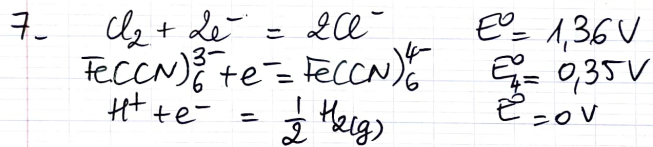 7- Cl₂ + 2e⁻ = 2Cl⁻ E⁰ = 1,36 V
Fe(CN)₆³⁻ + e⁻ = Fe(CN)₆⁴⁻ E⁰ = 0,35 V
H⁺ + e⁻ = 1/2 H₂(g) E⁰ = 0 V